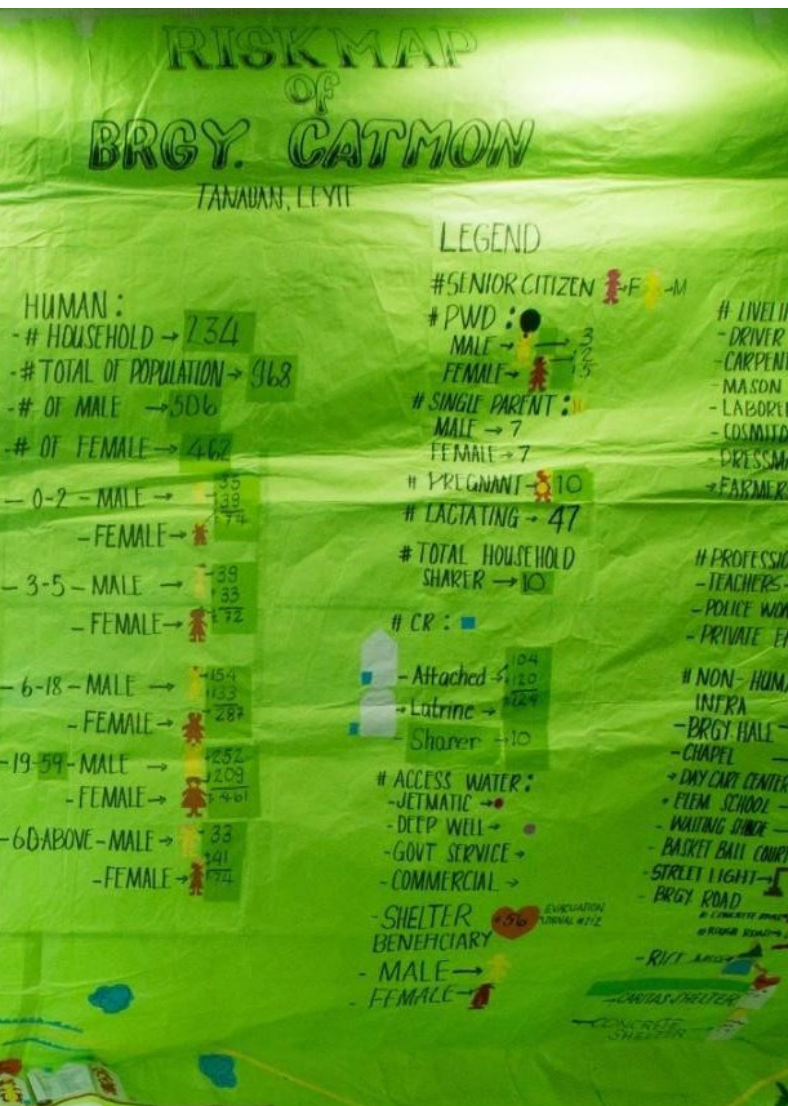 RISK MAP
OF
BRGY. CATMON
TANAUAN, LEYTE
HUMAN:
-# HOUSEHOLD → 234
-# TOTAL OF POPULATION → 968
-# OF MALE → 506
-# OF FEMALE → 462
- 0-2 - MALE → 35
39
74
- FEMALE →
- 3-5 - MALE → 39
33
72
- FEMALE →
- 6-18 - MALE → 154
133
287
- FEMALE →
-19-59 - MALE → 252
209
461
- FEMALE →
-60-ABOVE - MALE → 33
41
74
- FEMALE →
LEGEND
# SENIOR CITIZEN -F -M
# PWD :
MALE → 3
12
FEMALE → 15
# SINGLE PARENT :
MALE → 7
FEMALE → 7
# PREGNANT - 10
# LACTATING - 47
# TOTAL HOUSEHOLD
SHARER → 10
# CR :
- Attached → 104
120
- Latrine →
- Sharer → 10
# ACCESS WATER :
-JETMATIC →
-DEEP WELL →
-GOVT SERVICE →
-COMMERCIAL →
-SHELTER 56 EVACUATION
BENEFICIARY
- MALE →
- FEMALE →
# LIVELI
-DRIVER
-CARPEN
-MASON
-LABORE
-FARMER
# PROFESSIO
-TEACHERS-
-POLICE WO
-PRIVATE E
# NON-HUMA
INFRA
-BRGY. HALL -
-CHAPEL -
-DAY CARE CENTER
-ELEM SCHOOL -
-WAITING SHADE -
-BASKET BALL COURT
-STREET LIGHT →
-BRGY. ROAD
-CARITAS SHELTER
-CONCRETE
SHELTER